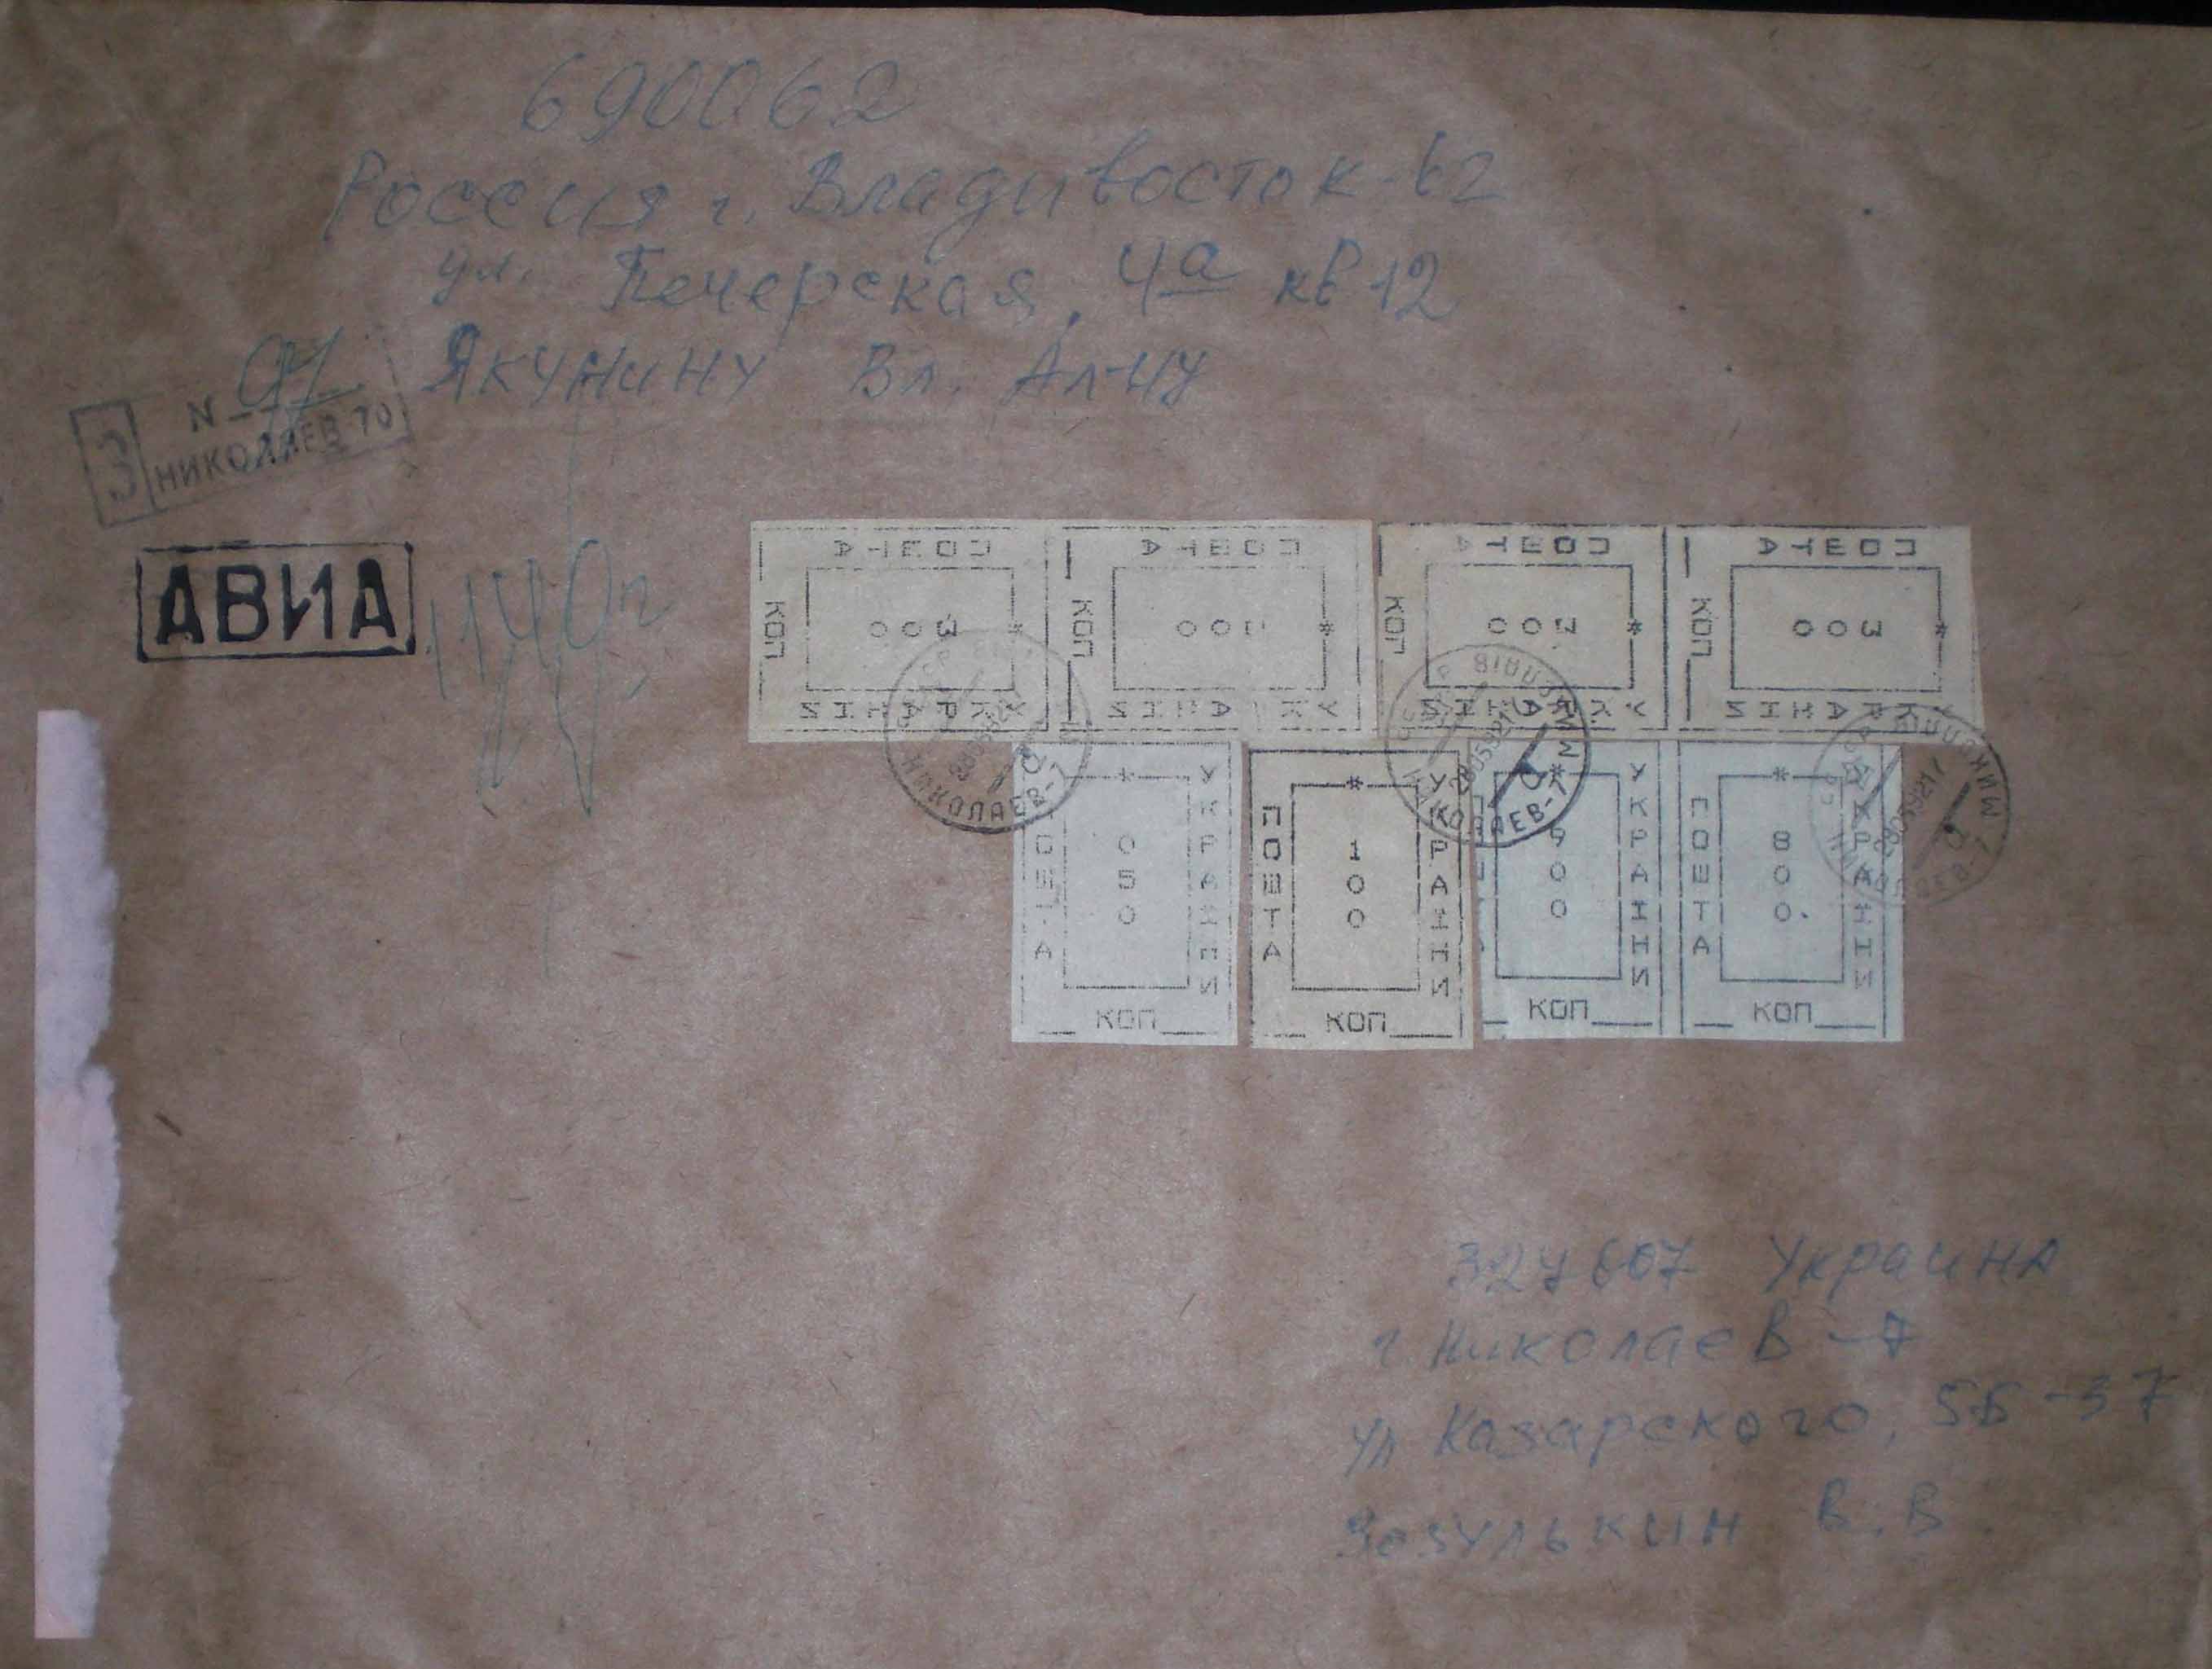 690062
Россия г. Владивосток-62
ул. Печерская, 4а кв 12
Якунину Вл. Ал-чу
З
N
НИКОЛАЕВ-70
АВИА
1140г
ПОШТА УКРАЇНИ 300 КОП
ПОШТА УКРАЇНИ 300 КОП
ПОШТА УКРАЇНИ 300 КОП
ПОШТА УКРАЇНИ 300 КОП
ПОШТА УКРАЇНИ 050 КОП
ПОШТА УКРАЇНИ 100 КОП
УКРАЇНИ КОП
ПОШТА УКРАЇНИ 800 КОП
НИКОЛАЕВ-7
327607 Украина
г. Николаев-7
ул Казарского, 5Б-37
Зозулькин В.В